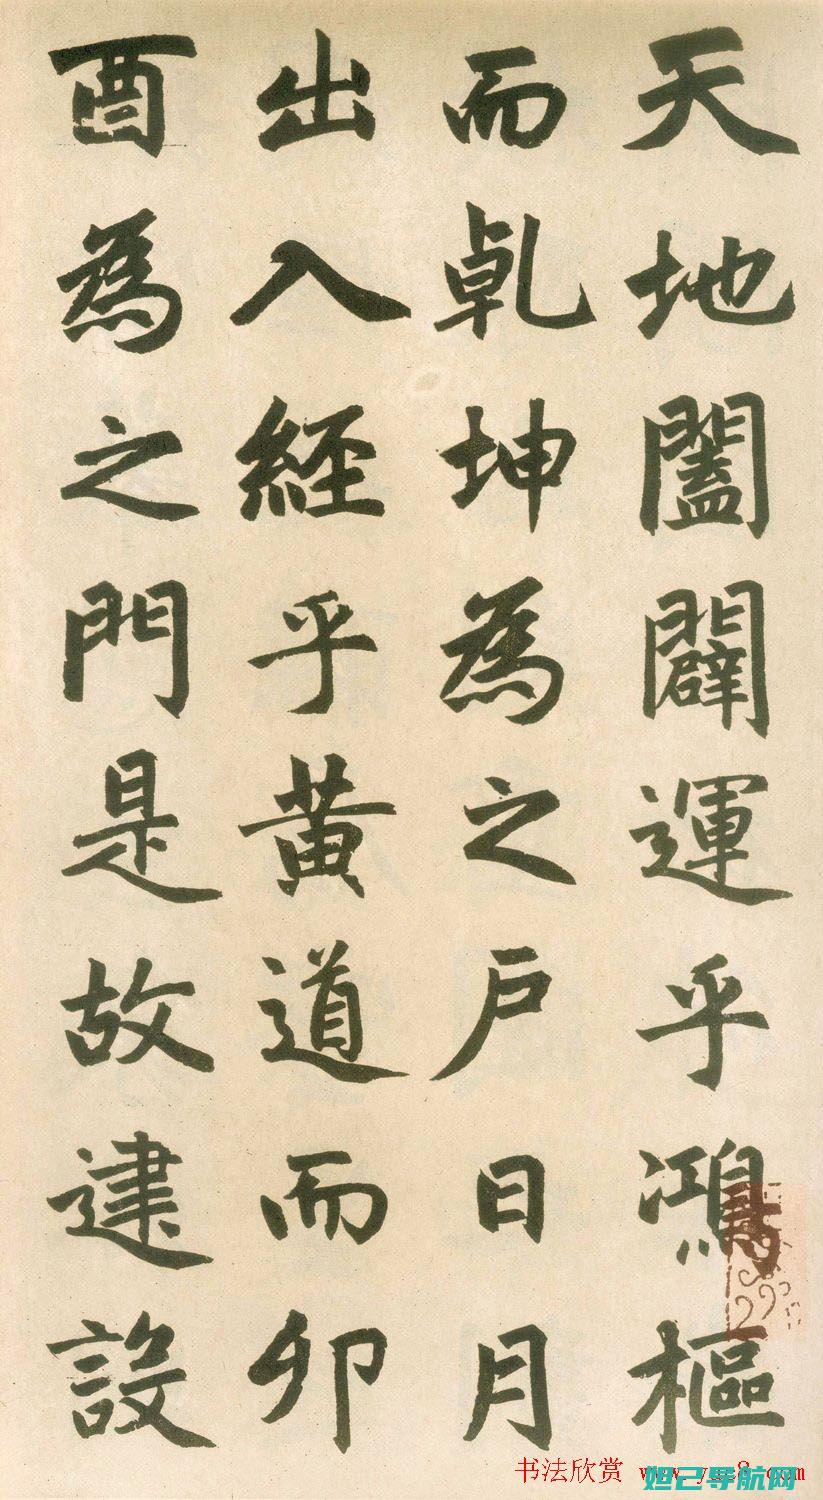 天地闔闢運乎鴻樞
而乹坤為之戶日月
出入經乎黃道而卯
酉為之門是故建設
书法欣赏
妲己导航网